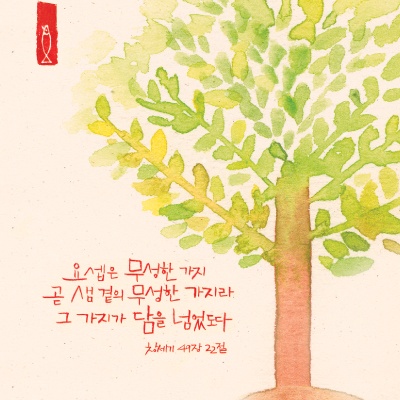 요셉은 무성한 가지
곧 샘 곁의 무성한 가지라
그 가지가 담을 넘었도다
창세기 49장 22절